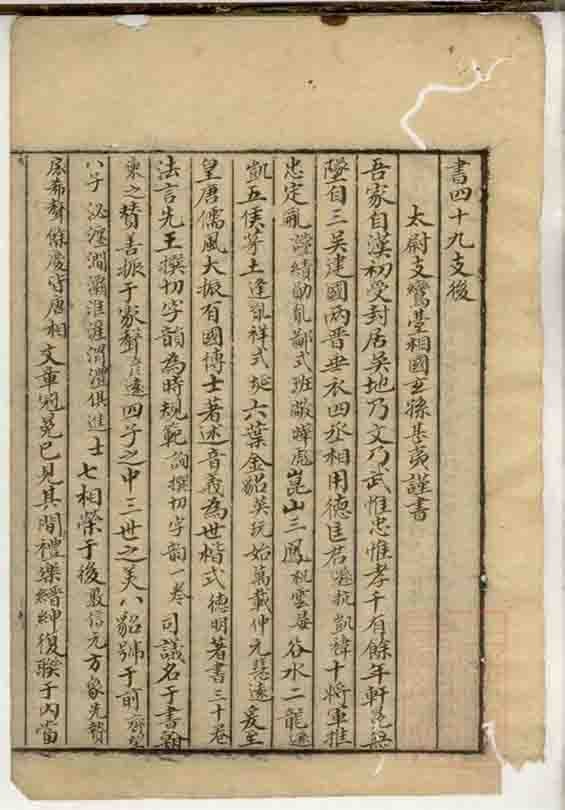 書四十九支後
太尉支鸞臺相國玄孫甚夷謹書
吾家自漢初受封居吳地乃文乃武惟忠惟孝千有餘年軒冕無
墜自三吳建國兩晉垂衣四丞相用德匡君遜抗凱禕十將軍推
忠定亂謬績勛胤鄱式班敞曄彪崑山三鳳機雲晏谷水二龍遜
凱五侯茅土逢胤祥式埏六葉金貂英玩始萬載仲元慧遠爰至
皇唐儒風大振有國博士著述音義為世楷式德明著書三十卷
法言先王撰切字韻為時規範詢撰切字韵一卷司議名于書翰
柬之贊善振于家聲彥遠四子之中三世之美八貂號于前齊望
八子泌澐澗灞淮渭澧俱進士七相榮于後敦信元方象先贊
扆希聲餘慶皆唐相文章冠冕已見其間禮樂縉紳復聯于內當